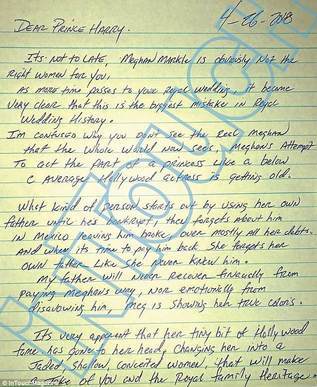 4-26-2018
DEAR PRINCE HARRY.
It's not to late, Meghan Markle is obviously Not the
right woman for you.
As more time passes to your Royal wedding, it became
very clear that this is the biggest mistake in Royal
Wedding History.
I'm confused why you don't see the Real Meghan
that the whole world Now sees. Meghan's Attempt
To act the part of a princess like a below
C average Hollywood actress is getting old.
What kind of person starts out by using her own
father until he's bankrupt, then forgets about him
in Mexico leaving him broke over mostly all her debts.
And when it's time to pay him back she forgets her
own father like she never knew him.
My father will never recover financially from
paying Meghan's way, nor emotionally from
disavowing him. Meg is showing her true colors.
It's very apparent that her tiny bit of Hollywood
fame has gone to her head. Changing her into a
Jaded, Shallow, conceited woman, that will make
a joke of you and the Royal family Heritage.
INTOUCH
© InTouch Magazine